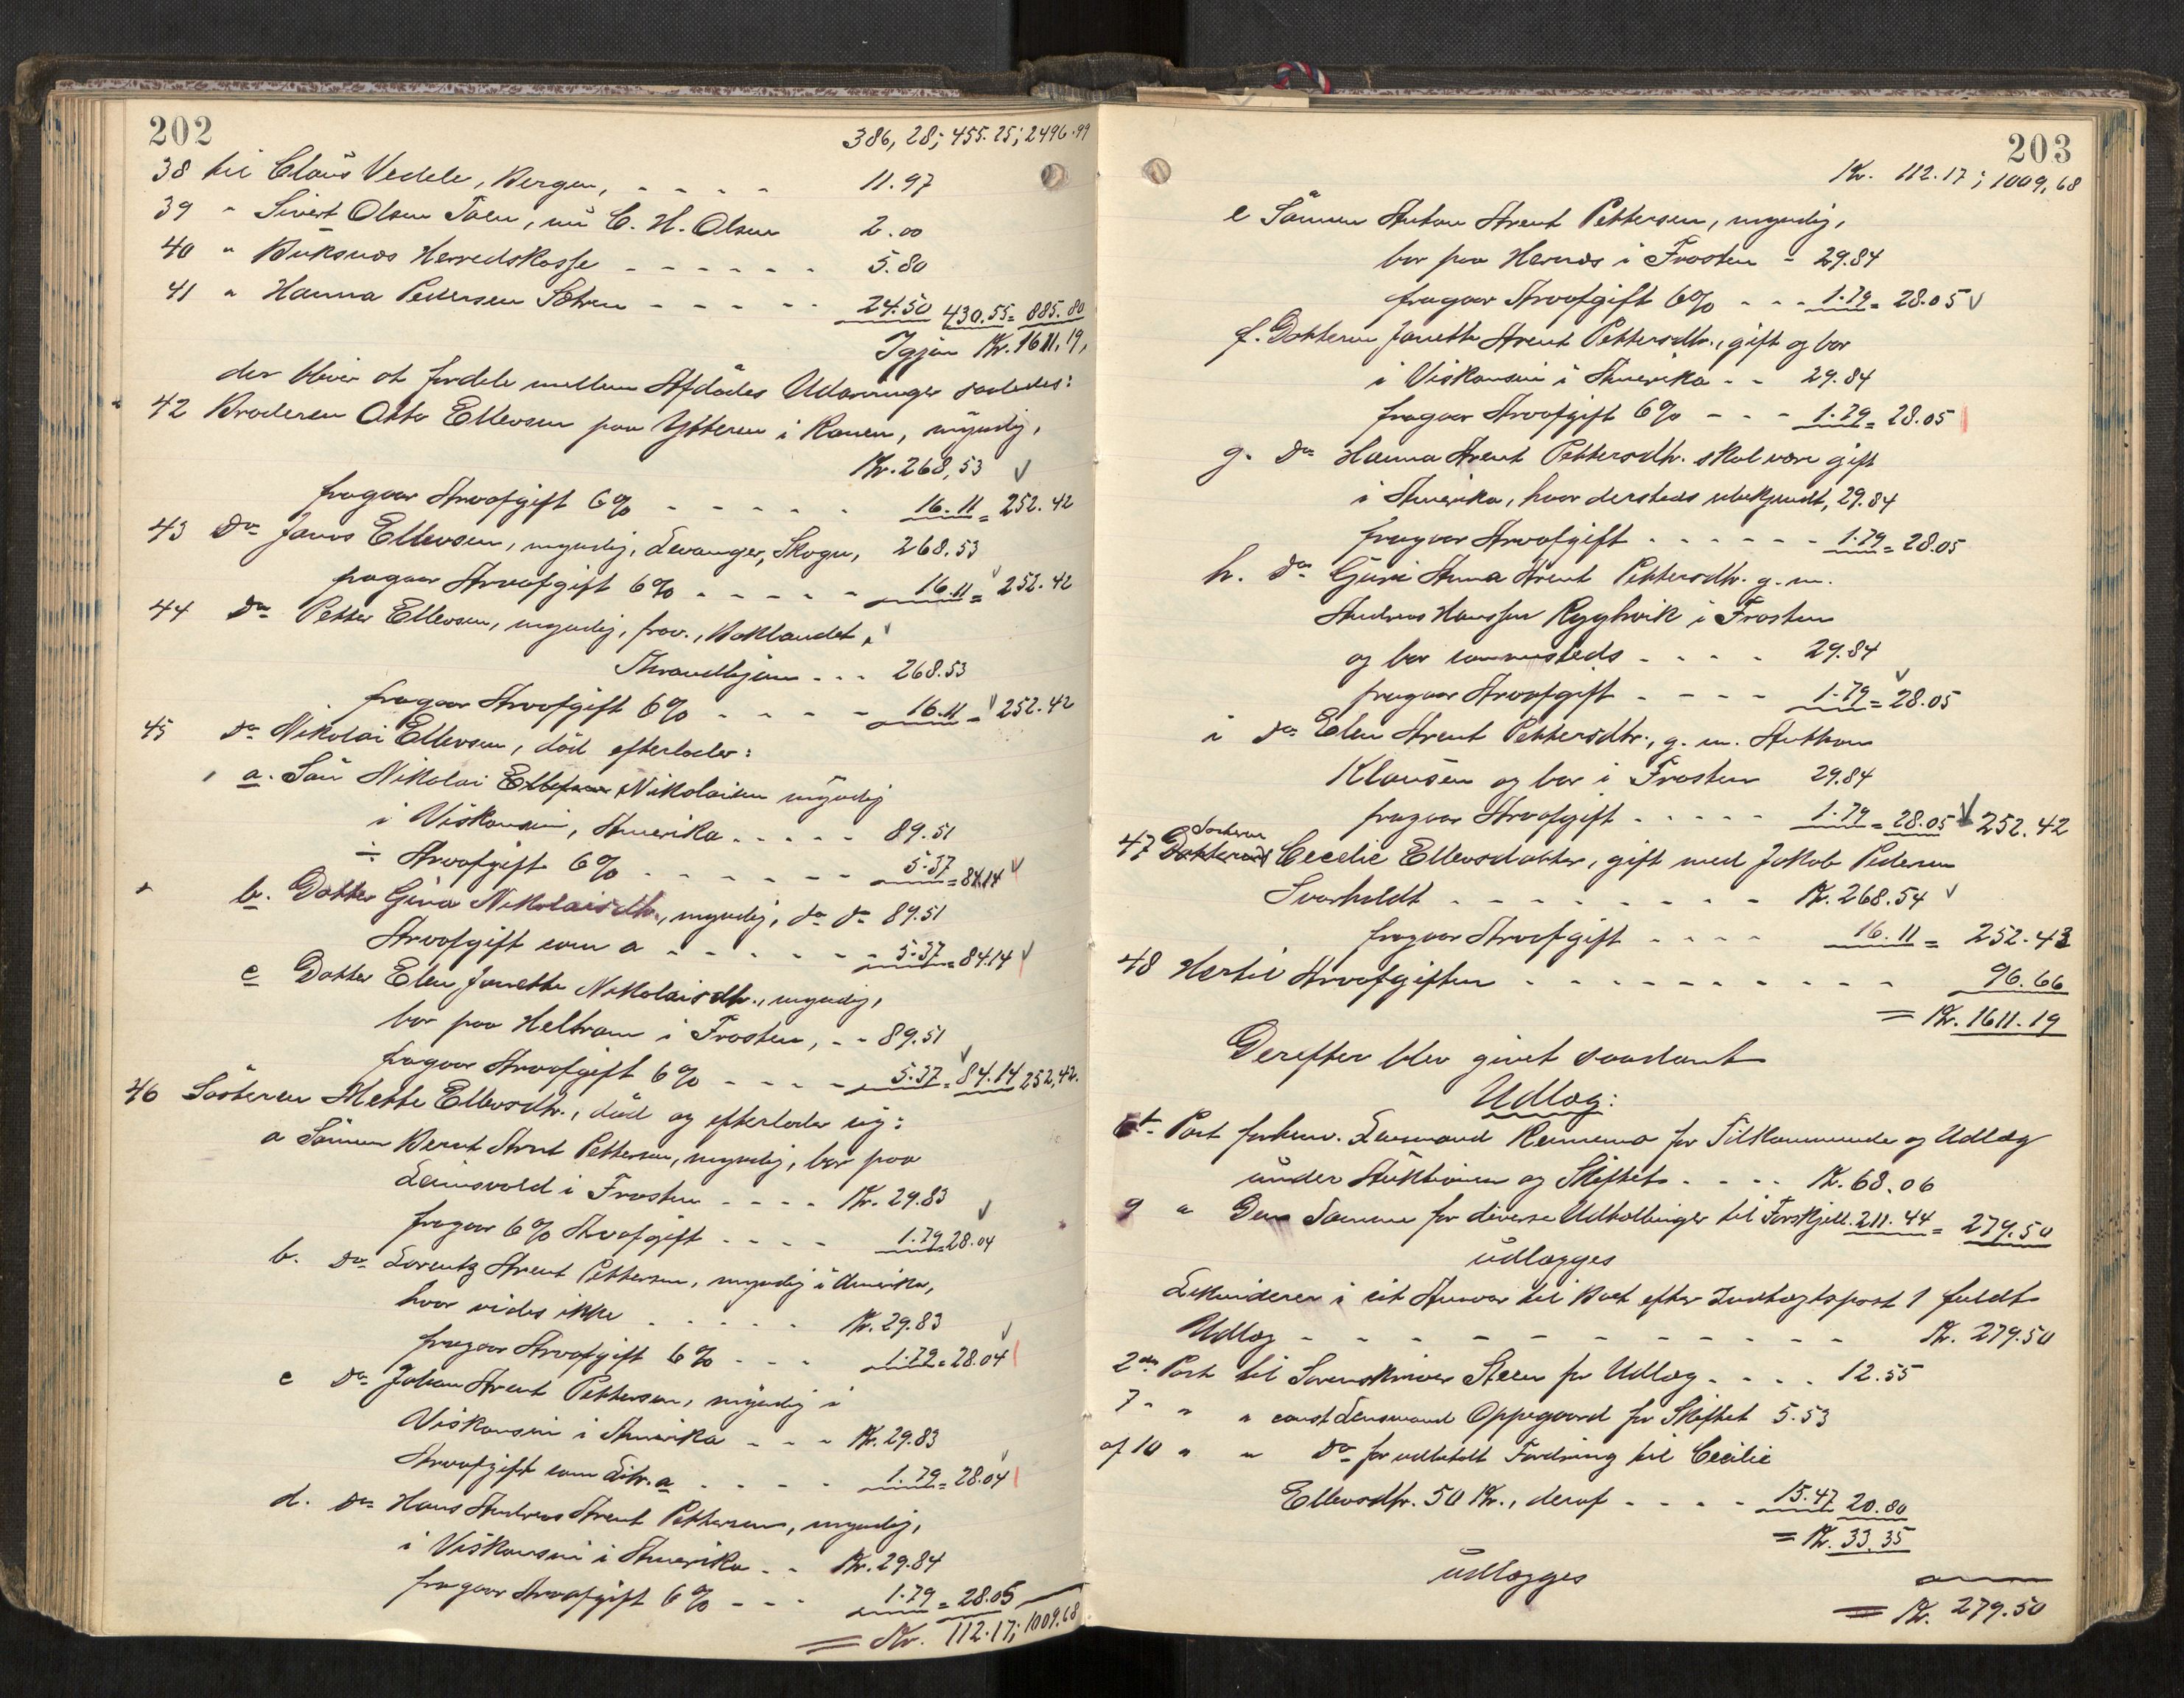 202
386,28; 455.25; 2496.99
38 til Claus Vedele, Bergen, - - - - 11.97
39 " Sivert Olsen Toen, nu C. H. Olsen 2.00
40 " Buksnæs Herredskasse - - - - - - 5.80
41 " Hanna Pedersen Sætren - - - - - 24.50 430.55 = 885.80
Igjen Kr. 1611.19,
der bliver at fordele mellem Afdødes Udarvinger saaledes:
42 Broderen Otto Ellevsen paa Ytteren i Ranen, myndig,
Kr. 268,53
fragaar Arveafgift 6% - - - - - - 16.11 = 252.42
43 Do Janos Ellevsen, myndig, Levanger, Skogn, 268.53
fragaar Arveafgift 6% - - - - - 16.11 = 252.42
44 Do Petter Ellevsen, myndig, frav., Baklandet,
Thrandhjem - - - 268.53
fragaar Arveafgift 6% - - - - - 16.11 = 252.42
45 Do Nikolai Ellevsen, død efterlader:
a. Søn Nikolai Nikolaisen myndig
i Viskonsin, Amerika - - - - - 89.51
÷ Arveafgift 6% - - - - - - 5.37 = 84.14
b. Datter Gina Nikolaisdtr., myndig, do do 89.51
Arveafgift som a - - - - - - 5.37 = 84.14
c Datter Elen Janette Nikolaisdtr., myndig,
bor paa Heltram i Frosten, - - 89.51
fragaar Arveafgift 6% - - - - 5.37 = 84.14 252,42.
46 Søsteren Mette Ellevsdtr., død og efterlader sig:
a Sønnen Bernt Arnt Pettersen, myndig, bor paa
Leinsvold i Frosten - - - - Kr. 29.83
fragaar 6% Arveafgift - - - - 1.79 28.04
b. Do Lorentz Arent Pettersen, myndig i Amerika,
hvor vides ikke - - - - - Kr. 29.83
fragaar Arveafgift 6% - - - 1.79 = 28.04
c Do Johan Arent Pettersen, myndig i
Viskonsin i Amerika - - - Kr. 29.83
Arveafgift som Litr. a - - - - 1.79 = 28.04
d. Do Hans Andreas Arent Pettersen, myndig,
i Viskonsin i Amerika - - Kr. 29.84
fragaar Arveafgift 6% - - - 1.79 = 28.05
= Kr. 112.17; 1009.68
203
Kr. 112.17; 1009,68
e Sønnen Anton Arent Pettersen, myndig,
bor paa Hernæs i Frosten - 29.84
fragaar Arveafgift 6% - - - 1.79 = 28.05
f. Datteren Janette Arent Pettersdtr., gift og bor
i Viskonsin i Amerika - - 29.84
fragaar Arveafgift 6% - - - 1.79 = 28.05
g. Do Hanna Arent Pettersdtr. skal være gift
i Amerika, hvor dersteds ubekjendt, 29.84
fragaar Arveafgift - - - - - - 1.79 = 28.05
h. Do Guri Anna Arent Pettersdtr. g. m.
Andreas Hanssen Ryghvik i Frosten
og bor sammesteds - - - - 29.84
fragaar Arveafgift - - - - 1.79 = 28.05
i Do Elen Arent Pettersdtr., g. m. Anthon
Klausen og bor i Frosten 29.84
fragaar Arveafgift - - - - - 1.79 = 28.05 252.42
Søsteren
47 Datteren Cecelie Ellevsdatter, gift med Jakob Pedersen
Svarholdt - - - - - - - - - Kr. 268.54
fragaar Arveafgift - - - - 16.11 = 252.43
48 Hertil Arveafgiften - - - - - - - - - - 96.66
= Kr. 1611.19
Derefter blev givet saadant
Udlæg:
6te Post forhenv. Lensmand for Tilkommende og Udlæg
under Auktionen og Skiftet - - - - Kr. 68.06
9 " Den Samme for diverse Udbetalinger til Forskjell. 211.44 = 279.50
udlægges
i sit Ansvar til Boet efter Indtægtspost 1 fuldt
Udlæg - - - - - - - - - - - Kr. 279.50
2den Post til Sorenskriver Steen for Udlæg - - - - 12.55
7 " " " const Lensmand Oppegaard for Skiftet 5.53
af 10 " " Do for udbetalt Fordring til Cecilie
Ellevsdtr. 50 Kr., deraf - - - - 15.47 20.80
= Kr. 33.35
udlægges
= Kr. 279.50